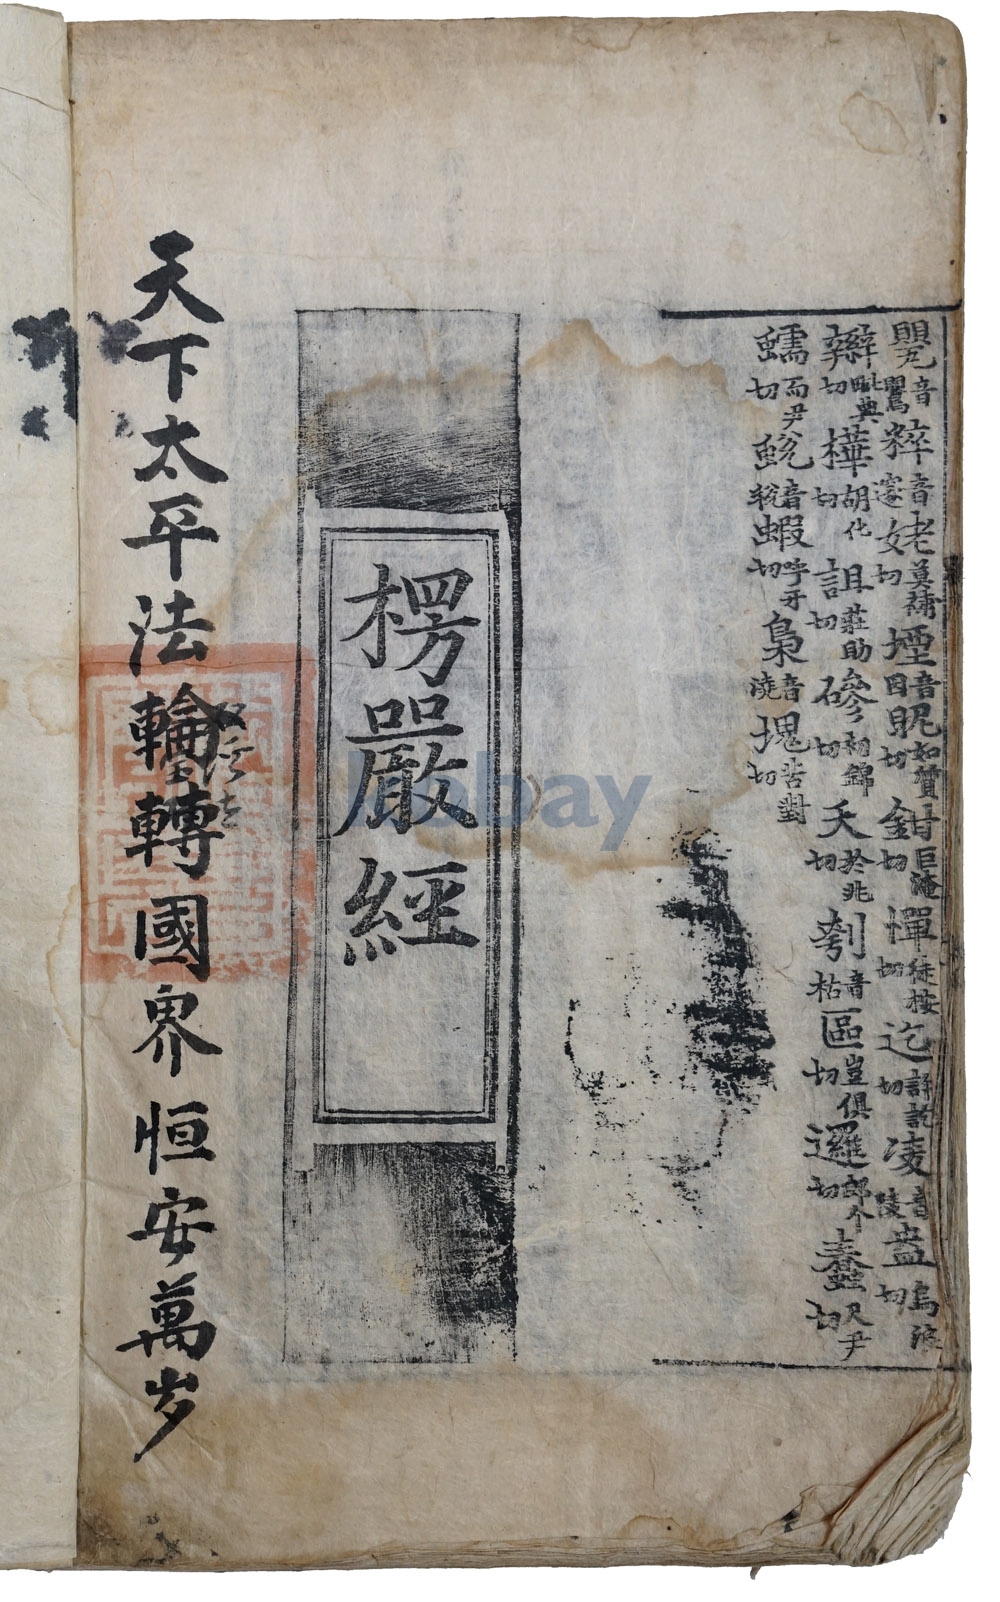 音鷪粹音邃姥莫補切堙音因貺如贊切鉗巨淹切憚徒按切迄許訖切凌音陵盎烏浪切
辮毗典切樺胡化切詛莊助切磣初錦切夭於兆切刳音枯區豈俱切邏郎个切蠢尺尹切
蠕而尹切蛻音稅蝦呼牙切梟音澆塊苦對切
楞嚴經
天下太平法輪轉國界恒安萬岁
kobay